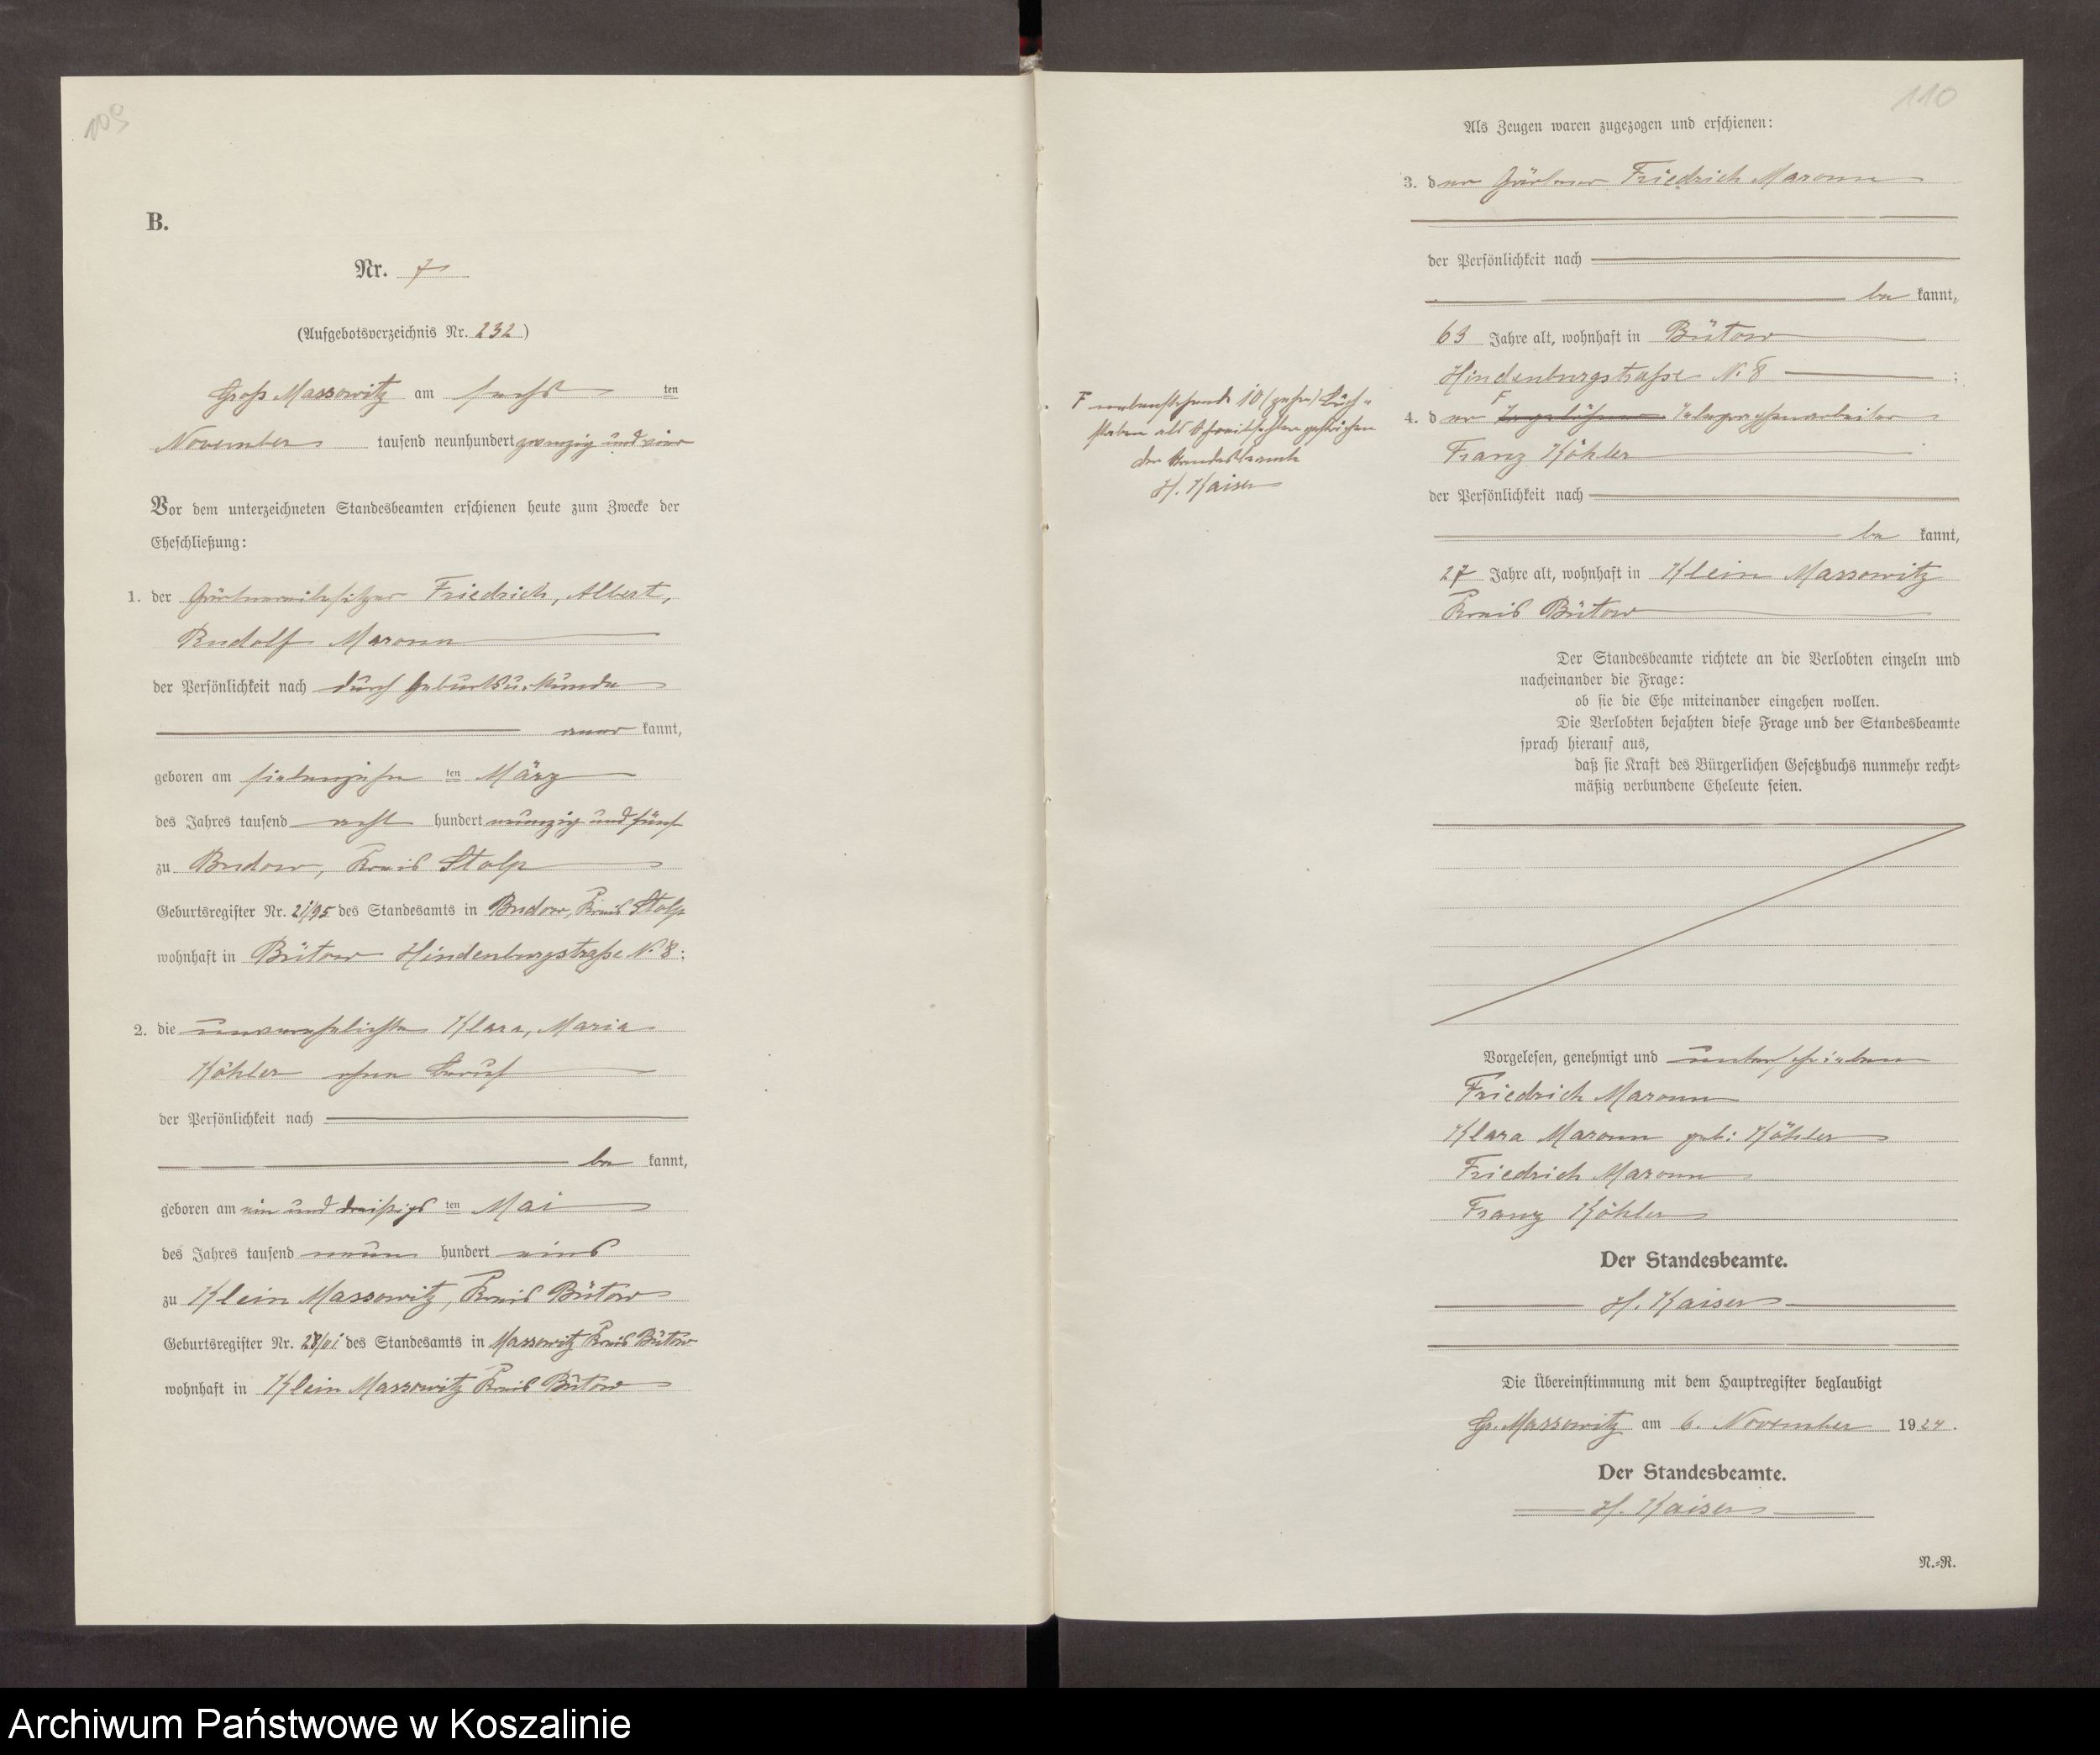 109
B.
Nr. 7
(Aufgebotsverzeichnis Nr. 232)
Groß Massowitz am sechs ten
November tausend neunhundert zwanzig und vier
Vor dem unterzeichneten Standesbeamten erschienen heute zum Zwecke der
Eheschließung:
1. der Gärtnereibesitzer Friedrich, Albert,
Rudolf Maronn
der Persönlichkeit nach durch Geburtsurkunde
aner kannt,
geboren am siebenzehn ten März
des Jahres tausend acht hundert neunzig und fünf
zu Budow, Kreis Stolp
Geburtsregister Nr. 21/95 des Standesamts in Budow, Kreis Stolp
wohnhaft in Bütow Hindenburgstraße N. 8;
2. die unverehelichte Klara, Maria
Köhler ohne Beruf
der Persönlichkeit nach
be kannt,
geboren am ein und dreißigs ten Mai
des Jahres tausend neun hundert eins
zu Klein Massowitz, Kreis Bütow
Geburtsregister Nr. 28/01 des Standesamts in Massowitz Kreis Bütow
wohnhaft in Klein Massowitz Kreis Bütow
110
Als Zeugen waren zugezogen und erschienen:
3. der Gärtner Friedrich Maronn
der Persönlichkeit nach
be kannt,
63 Jahre alt, wohnhaft in Bütow
Hindenburgstraße N. 8 ;
F nebenstehende 10 (zehn) Buch-
staben als Schreibfehler gestrichen
der Standesbeamte
H. Kaiser
F
4. der Tagelöhner Telegraphenarbeiter
Franz Köhler
der Persönlichkeit nach
be kannt,
27 Jahre alt, wohnhaft in Klein Massowitz
Kreis Bütow
Der Standesbeamte richtete an die Verlobten einzeln und
nacheinander die Frage:
ob sie die Ehe miteinander eingehen wollen.
Die Verlobten bejahten diese Frage und der Standesbeamte
sprach hierauf aus,
daß sie Kraft des Bürgerlichen Gesetzbuchs nunmehr recht-
mäßig verbundene Eheleute seien.
Vorgelesen, genehmigt und unterschrieben
Friedrich Maronn
Klara Maronn geb: Köhler
Friedrich Maronn
Franz Köhler
Der Standesbeamte.
H. Kaiser
Die Übereinstimmung mit dem Hauptregister beglaubigt
Gr. Massowitz am 6. November 1924.
Der Standesbeamte.
H. Kaiser
N.-R.
Archiwum Państwowe w Koszalinie